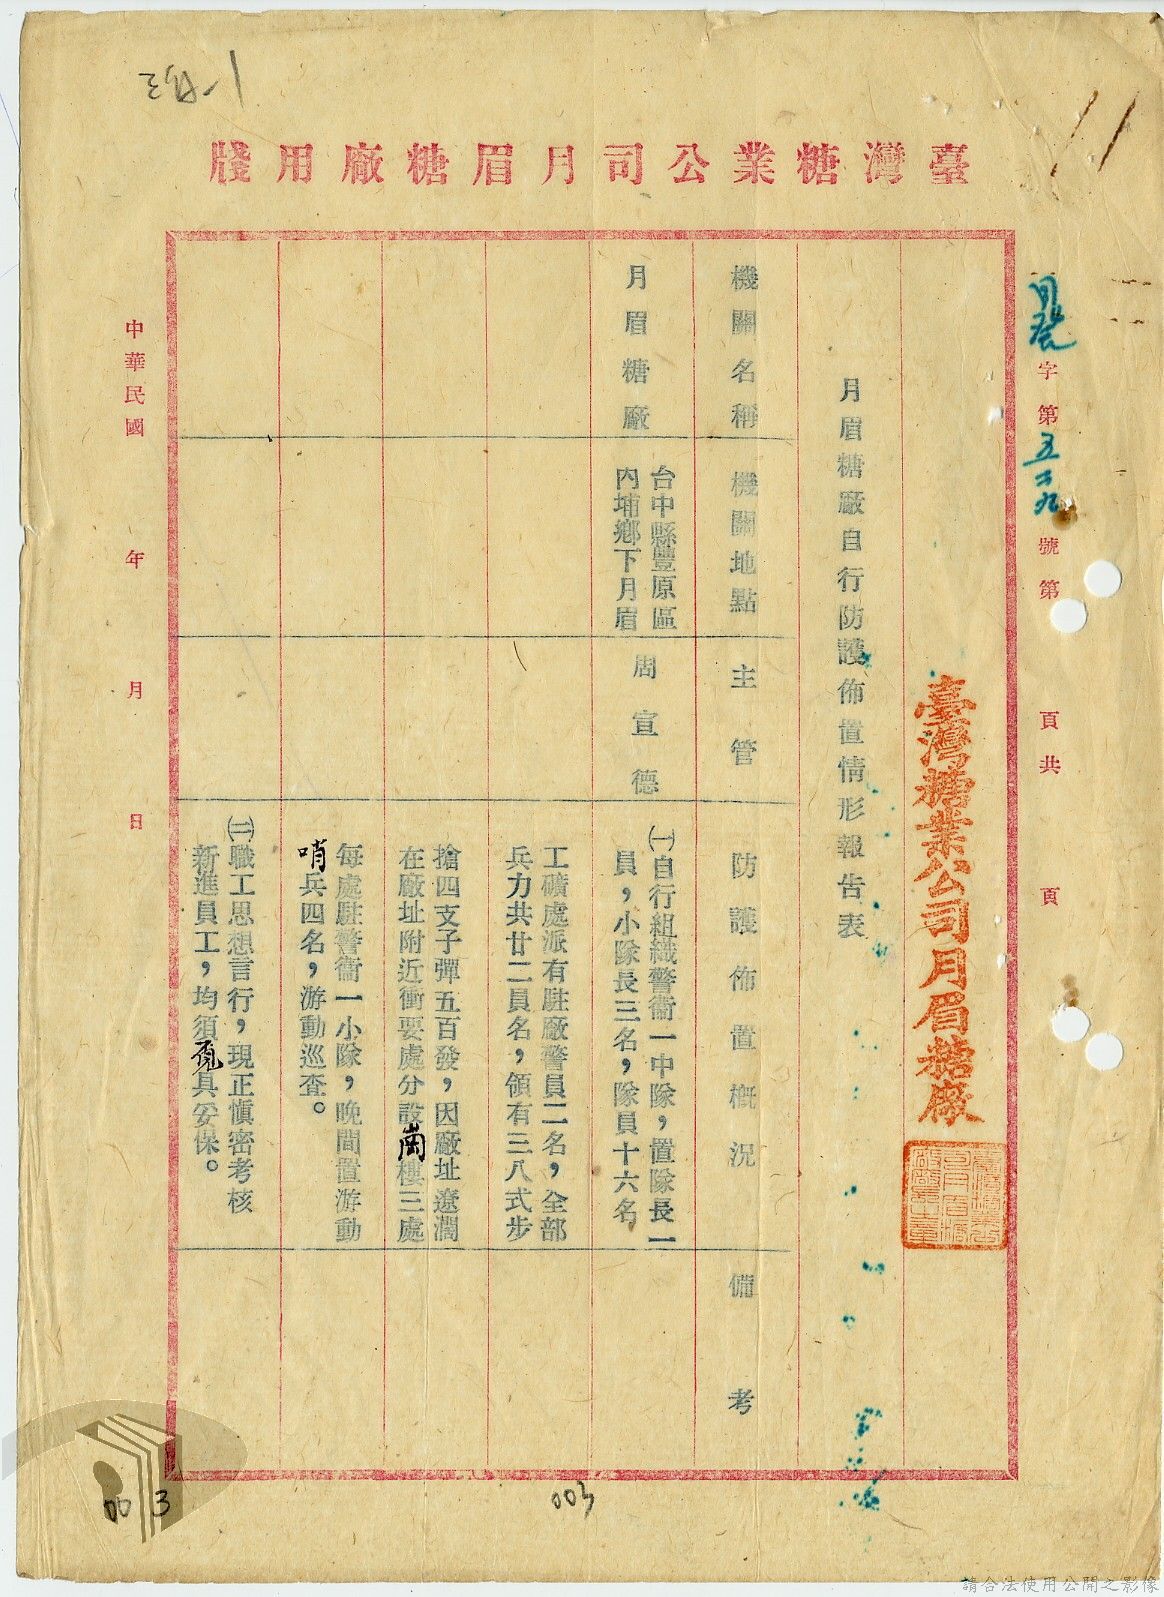 臺灣糖業公司月眉糖廠用牋
字第五二九號第 頁共 頁
臺灣糖業公司月眉糖廠
月眉糖廠自行防護佈置情形報告表
機關名稱
機關地點
主管
防護佈置概況
備考
月眉糖廠
台中縣豐原區
內埔鄉下月眉
周宣德
㈠自行組織警衞一中隊，置隊長一
員，小隊長三名，隊員十六名
工礦處派有駐廠警員二名，全部
兵力共廿二員名，領有三八式步
搶四支子彈五百發，因廠址遼濶
在廠址附近衝要處分設崗樓三處
每處駐警衞一小隊，晚間置游動
哨兵四名，游動巡查。
㈡職工思想言行，現正愼密考核
新進員工，均須覓具妥保。
中華民國 年 月 日
003
003
請合法使用公開之影像